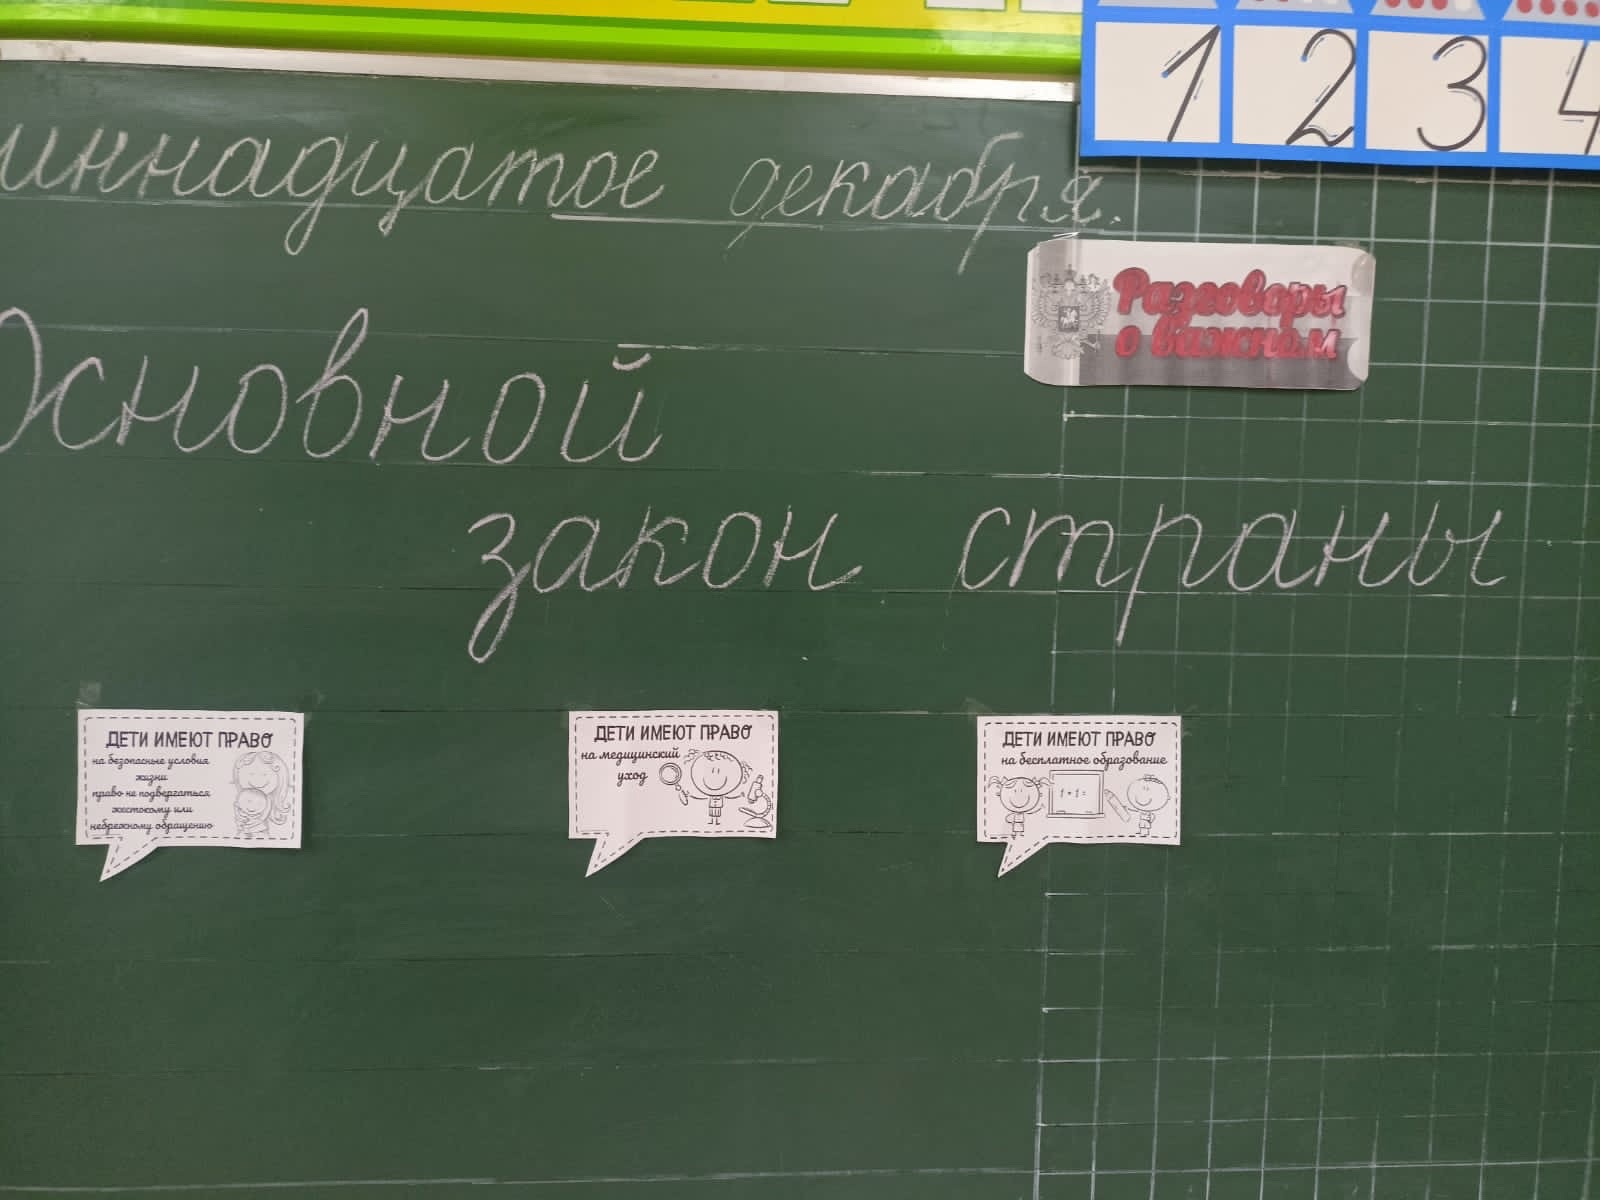 иннадцатое декабря.
1 2 3 4
Разговоры
о важном
Основной
закон страны
ДЕТИ ИМЕЮТ ПРАВО
на безопасные условия
жизни
право не подвергаться
жестокому или
небрежному обращению
ДЕТИ ИМЕЮТ ПРАВО
на медицинский
уход
ДЕТИ ИМЕЮТ ПРАВО
на бесплатное образование
1 + 1 =